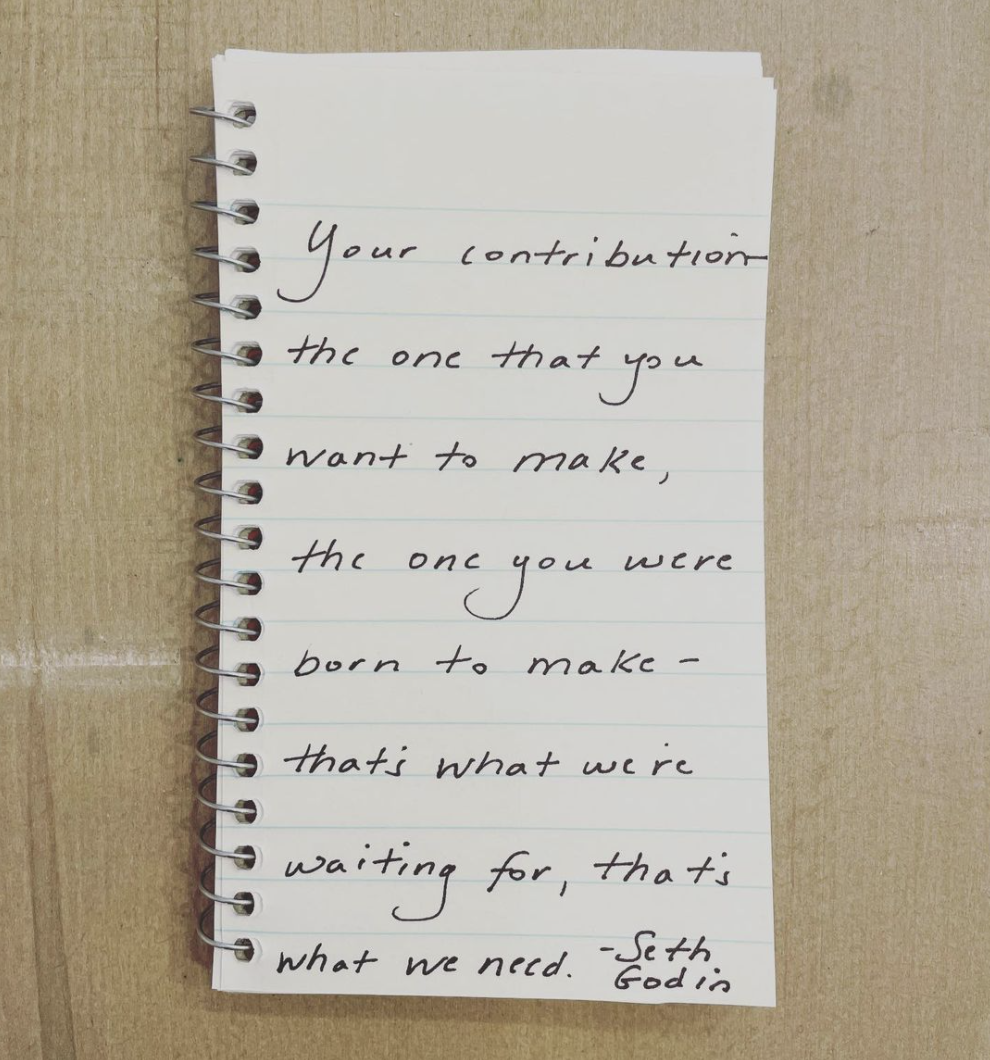 Your contribution-
the one that you
want to make,
the one you were
born to make -
that's what we're
waiting for, that's
what we need. -Seth
Godin